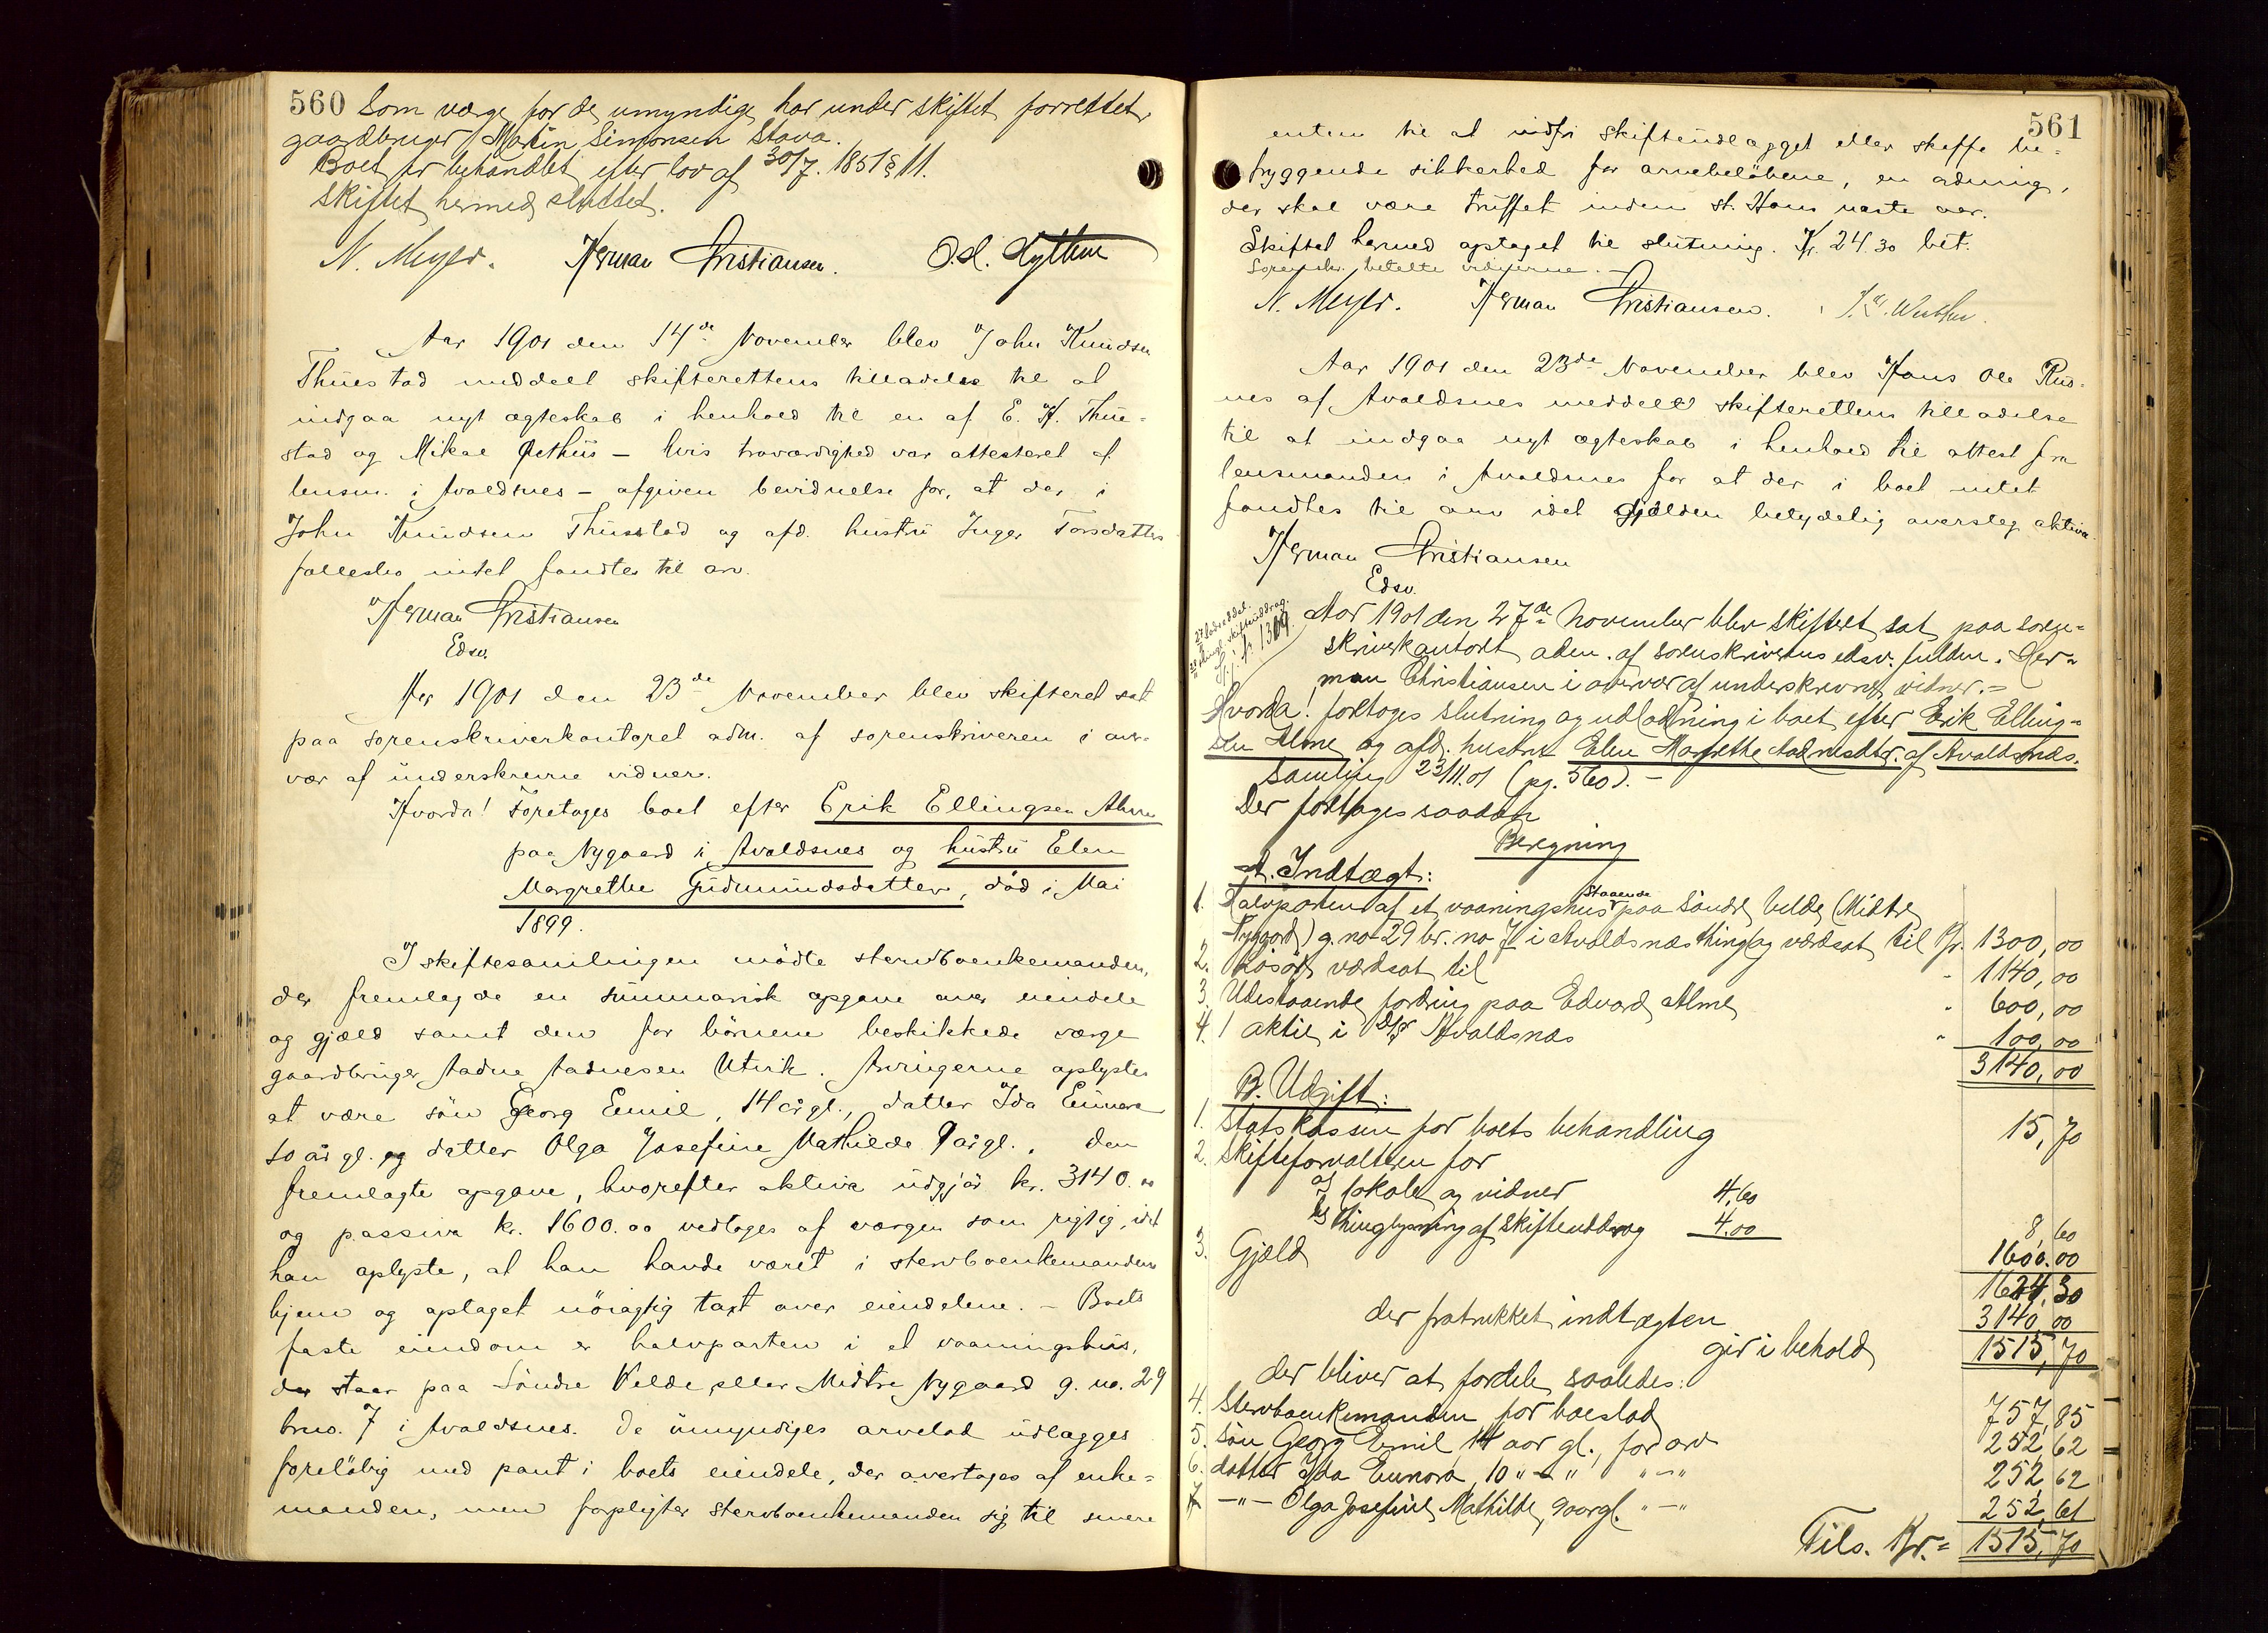 560 Som værge for de umyndige har under skiftet forrettet
gaardbruger Martin Simonsen Stava.
Boet er behandlet efter lov af 30/7. 1851 § 11.
Skiftet hermed sluttet.
N. Meyer. Herman Christiansen.
Aar 1901 den 14de November blev John Knudsen
Thuestad meddelt skifterettens tilladelse til at
indgaa nyt ægteskab i henhold til en af E. K. Thue-
stad og Mikal Østhus – hvis troværdighed var attesteret af
lensm. i Avaldsnes – afgiven bevidnelse for, at der i
John Knudsen Thuestad og afd. hustru Inger Torsdatters
fællesbo intet fandtes til arv.
Herman Christiansen
Edsv.
Aar 1901 den 23de November blev skifteret sat
paa sorenskriverkontoret adm. af sorenskriveren i over-
vær af underskrevne vidner.
Hvorda! Foretoges boet efter Erik Ellingsen Alme
paa Nygaard i Avaldsnes og hustru Elen
Margrethe Gudmundsdatter, död i Mai
1899.
I skiftesamlingen mödte stervboenkemanden,
der fremlagde en summarisk opgave over eiendele
og gjæld samt den for börnene beskikkede værge
gaardbruger Aadne Aadnesen Utvik. Arvingerne oplystes
at være sön Georg Emil, 14 år gl., datter Ida Eunora
10 år gl. og datter Olga Josefine Mathilde 9 år gl. Den
fremlagte opgave, hvorefter aktiva udgjör kr. 3140.00
og passiva kr. 1600.00 vedtoges af værgen som rigtig, idet
han oplyste, at han havde været i stervboenkemandens
hjem og optaget nöiagtig taxt over eiendelene. – Boets
faste eiendom er halvparten i et vaaningshus,
der staar paa Söndre Velde eller Midtre Nygaard g. no. 29
brno. 7 i Avaldsnes. De umyndiges arvelod udlægges
forelöbig med pant i boets eiendele, der overtages af enke-
manden, men forpligter stervboenkemanden sig til senere
561
enten til at indfri skifteudlægget eller skaffe be-
tryggende sikkerhed for arvebelöbene, en ordning,
der skal være truffet inden St. Hans næste aar.
Skiftet hermed optaget til slutning. Kr. 24.30 bet.
Sorenskr. betalte vidnerne. –
N. Meyer. Herman Christiansen.
Aar 1901 den 23de November blev Hans Ole Rus-
nes af Avaldsnes meddelt skifterettens tilladelse
til at indgaa nyt ægteskab i henhold til attest fra
lensmanden i Avaldsnes for at der i boet intet
fandtes til arv idet gjælden betydelig oversteg aktiva.
Herman Christiansen
Edsv.
Aar 1901 den 27de November blev skifteret sat paa soren-
skriverkontoret adm. af sorenskriverens edsv. fuldm. Her-
man Christiansen i overvær af underskrevne vidner. –
Hvorda! foretoges slutning og udlodning i boet efter Erik Elling-
sen Alme og afd. hustru Elen Margrethe Aadnesdtr. af Avaldsnæs.
Samling 23/11.01 (pg. 560). –
Der foretoges saadan
Beregning
A. Indtægt:
1. Halvparten af et vaaningshus staaende paa Söndre Velde (Midtre
Nygaard) g. no 29 br. no 7 i Avaldsnæs thinglag værdsat til Kr. 1300,00
2. Lösöre værdsat til " 1140,00
3. Udestaaende fordring paa Edvard Alme " 600,00
4. 1 aktie i D/S Avaldsnæs " 100,00
3140,00
B. Udgift:
1. Statskassen for boets behandling 15,70
2. Skifteforvalteren for
a) lokale og vidner 4.60
b) thinglysning af skifteuddrag 4.00 8,60
3. Gjæld 1600.00
1624,30
der fratrukket indtægten 3140,00
gir i behold 1515,70
der bliver at fordele saaledes:
4. Stervboenkemanden for boeslod 757,85
5. Sön Georg Emil 14 aar gl., for arv 252,62
6. datter Ida Eunora, 10 " – " " – " 252,62
7 – " – Olga Josefine Mathilde, 9 aar gl. " – " 252,61
Tils. Kr. = 1515,70